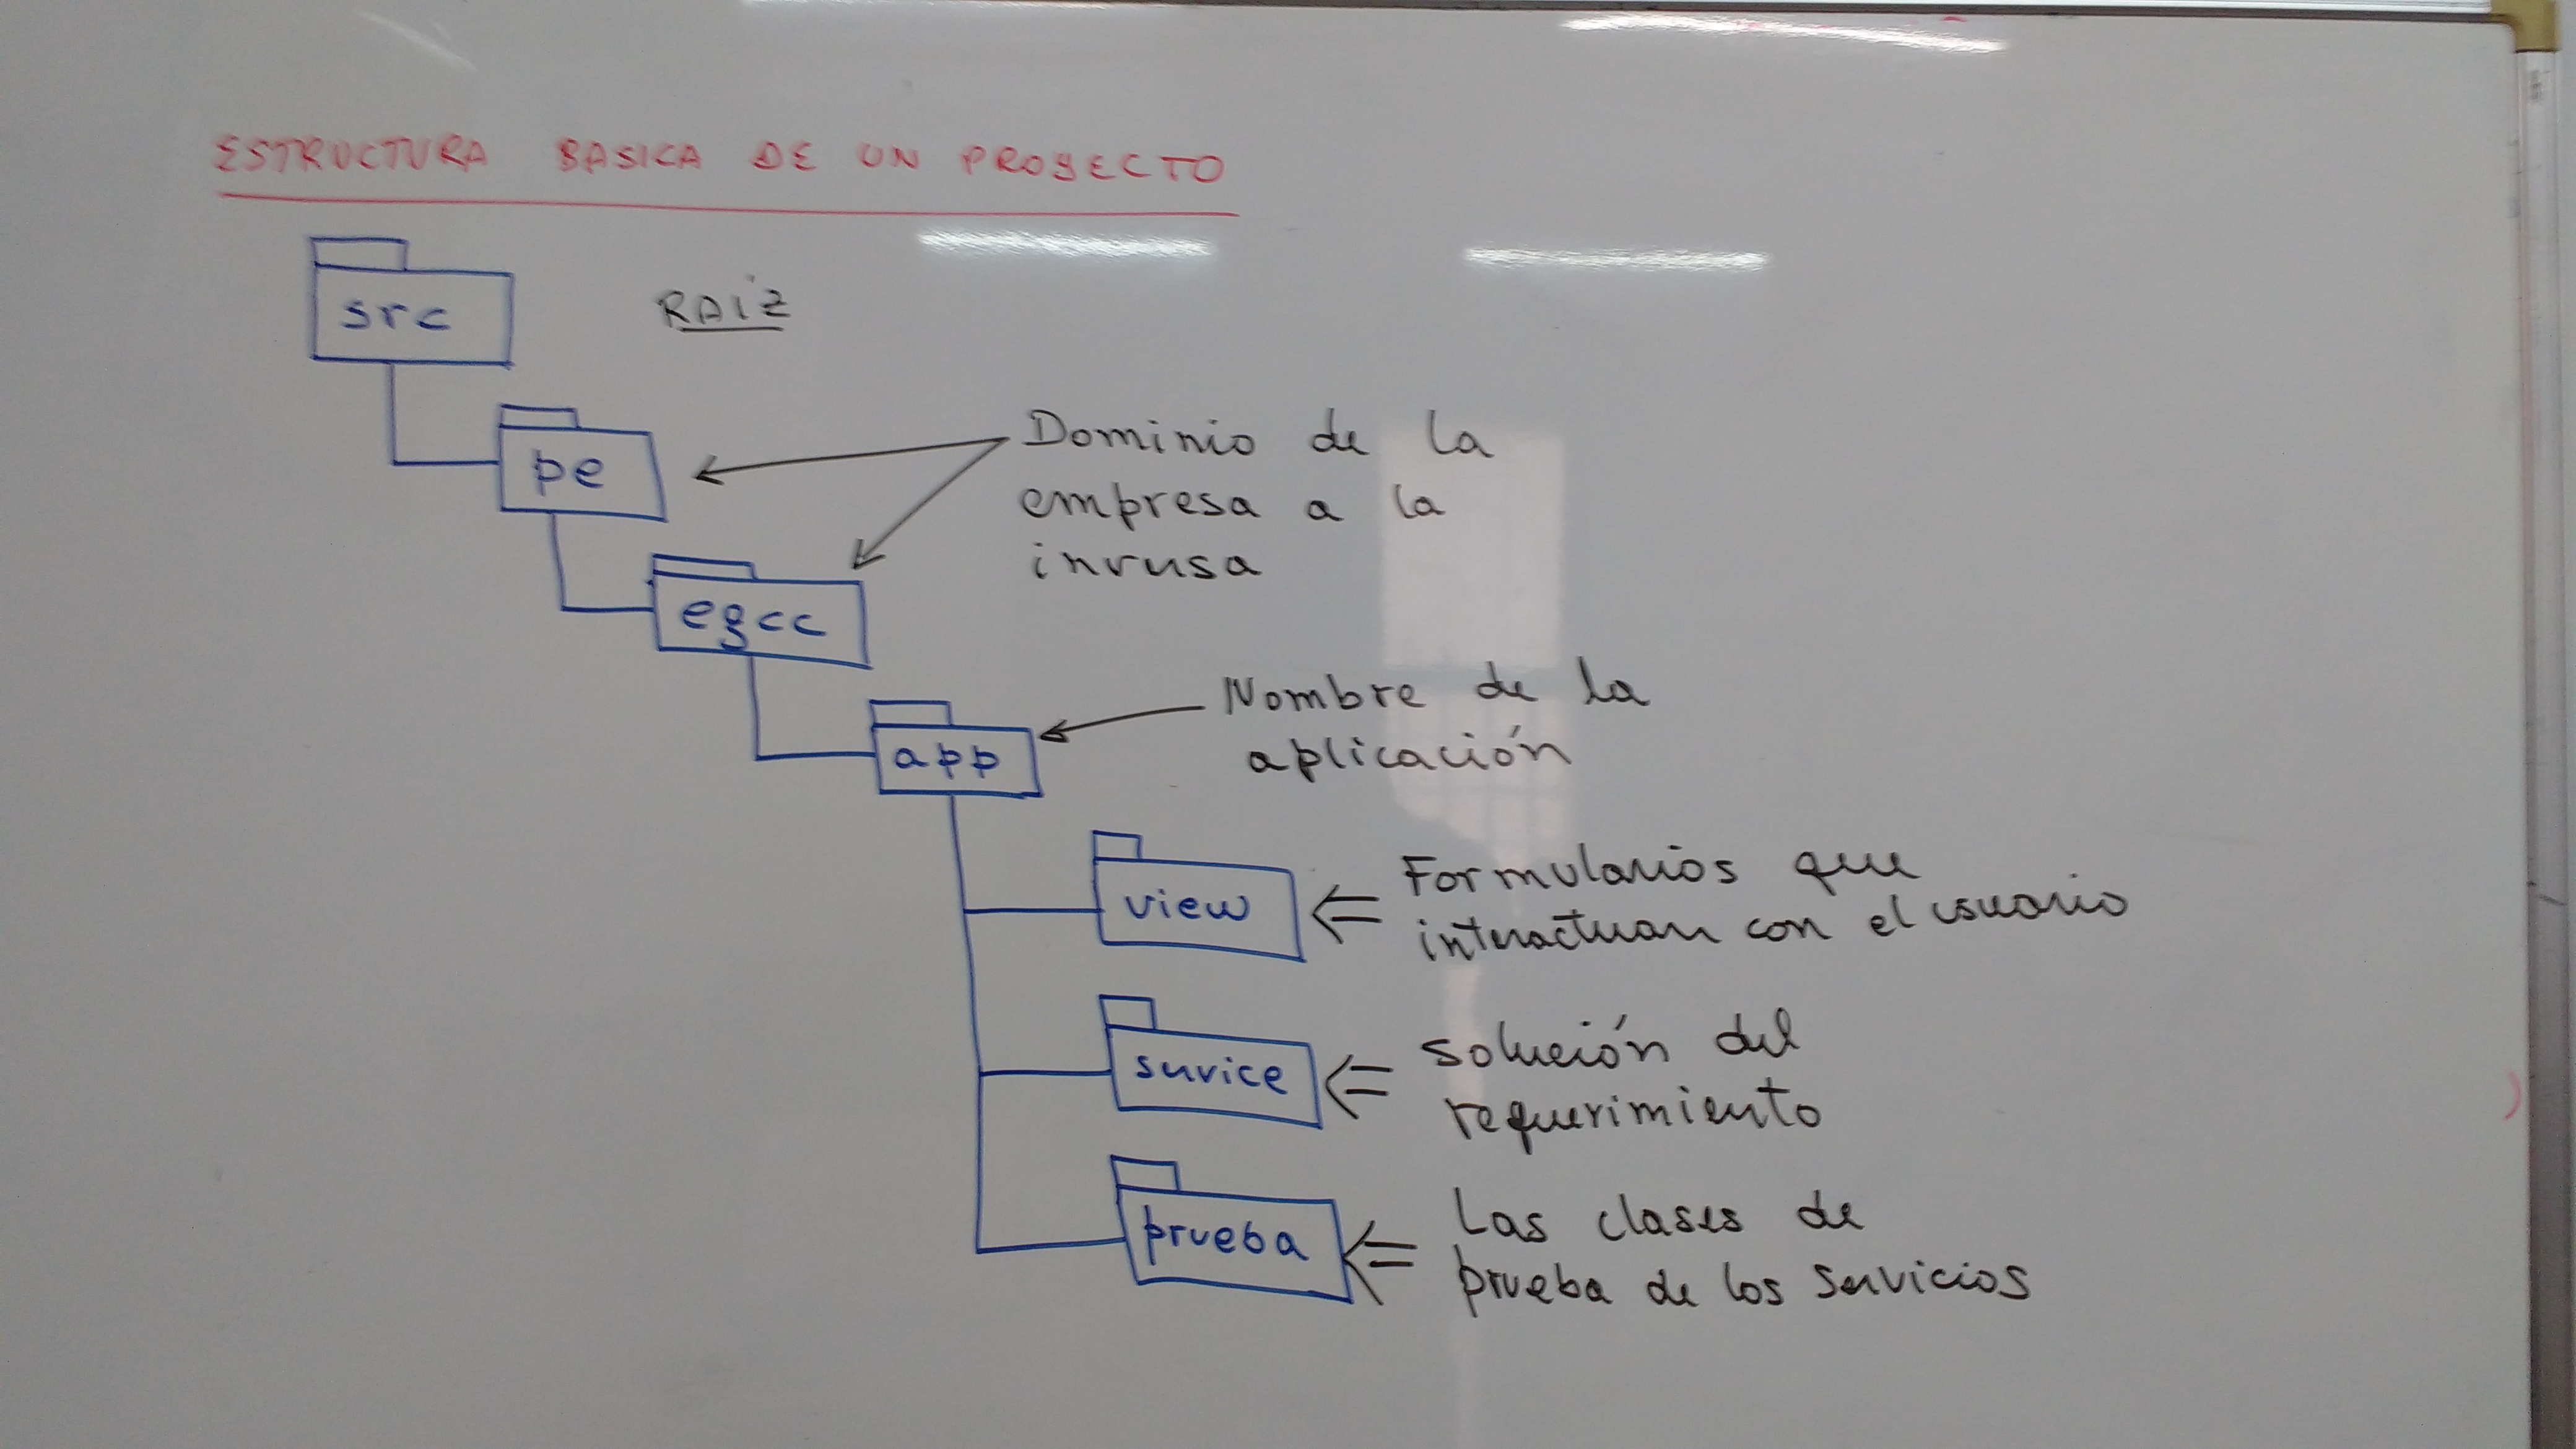 ESTRUCTURA BASICA DE UN PROYECTO
src
RAIZ
pe
Dominio de la
empresa a la
inversa
egcc
app
Nombre de la
aplicación
view
Formularios que
interactuan con el usuario
service
solución del
requerimiento
prueba
Las clases de
prueba de los servicios